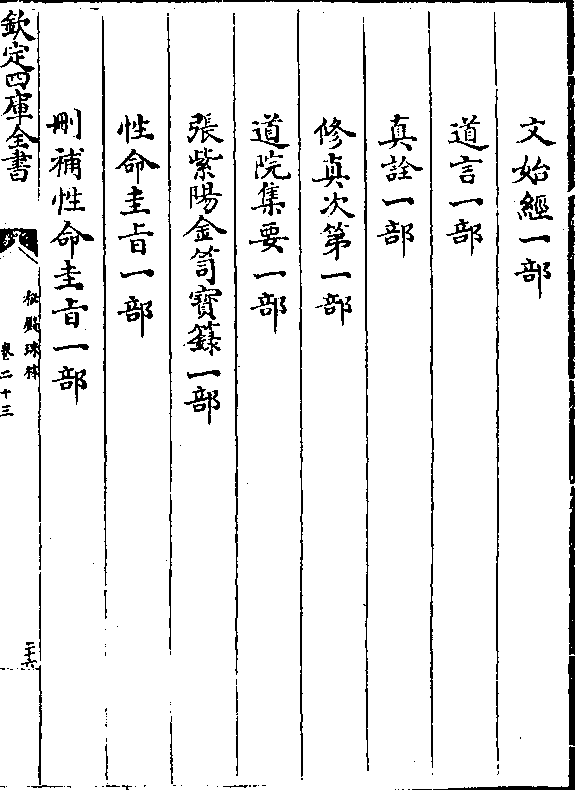 文始經一部
道言一部
真詮一部
修真次第一部
道院集要一部
張紫陽金笥寶籙一部
性命圭旨一部
刪補性命圭旨一部
欽定四庫全書
秘殿珠林
卷二十三
二十六